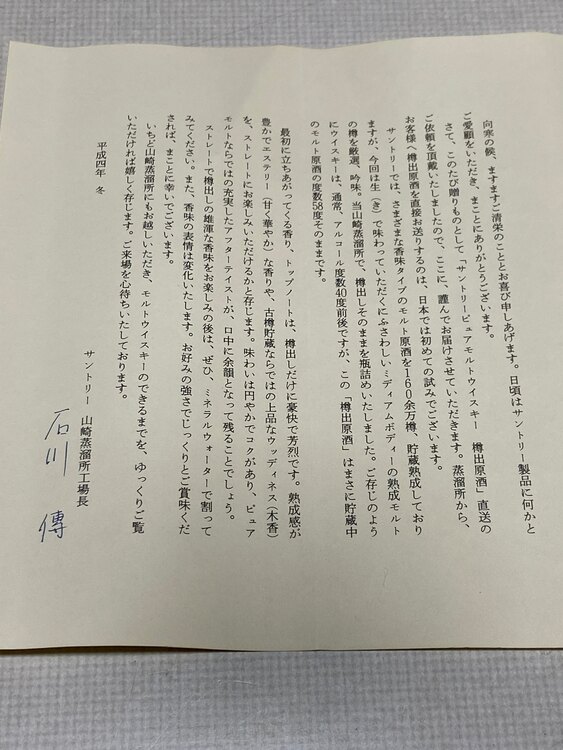 向寒の候、ますますご清栄のこととお喜び申しあげます。日頃はサントリー製品に何かと
ご愛顧をいただき、まことにありがとうございます。
さて、このたび贈りものとして、「サントリーピュアモルトウイスキー 樽出原酒」直送の
ご依頼を頂戴いたしましたので、ここに、謹んでお届けさせていただきます。蒸溜所から、
お客様へ樽出原酒を直接お送りするのは、日本では初めての試みでございます。
サントリーでは、さまざまな香味タイプのモルト原酒を160余万樽、貯蔵熟成しており
ますが、今回は生(き)で味わっていただくにふさわしいミディアムボディーの熟成モルト
の樽を厳選、吟味。当山崎蒸溜所で、樽出しそのままを瓶詰めいたしました。ご存じのよう
にウイスキーは、通常、アルコール度数40度前後ですが、この「樽出原酒」はまさに貯蔵中
のモルト原酒の度数58度そのままです。
最初に立ちあがってくる香り、トップノートは、樽出しだけに豪快で芳烈です。熟成感が
豊かでエステリー(甘く華やか)な香りや、古樽貯蔵ならではの上品なウッディネス(木香)
を、ストレートにお楽しみいただけるかと存じます。味わいは円やかでコクがあり、ピュア
モルトならではの充実したアフターテイストが、口中に余韻となって残ることでしょう。
ストレートで樽出しの雄渾な香味をお楽しみの後は、ぜひ、ミネラルウォーターで割って
みてください。また、香味の表情は変化いたします。お好みの強さでじっくりとご賞味くだ
されば、まことに幸いでございます。
いちど山崎蒸溜所にもお越しいただき、モルトウイスキーのできるまでを、ゆっくりご覧
いただければ嬉しく存じます。ご来場を心待ちいたしております。
平成四年 冬
サントリー 山崎蒸溜所工場長
石川 傳